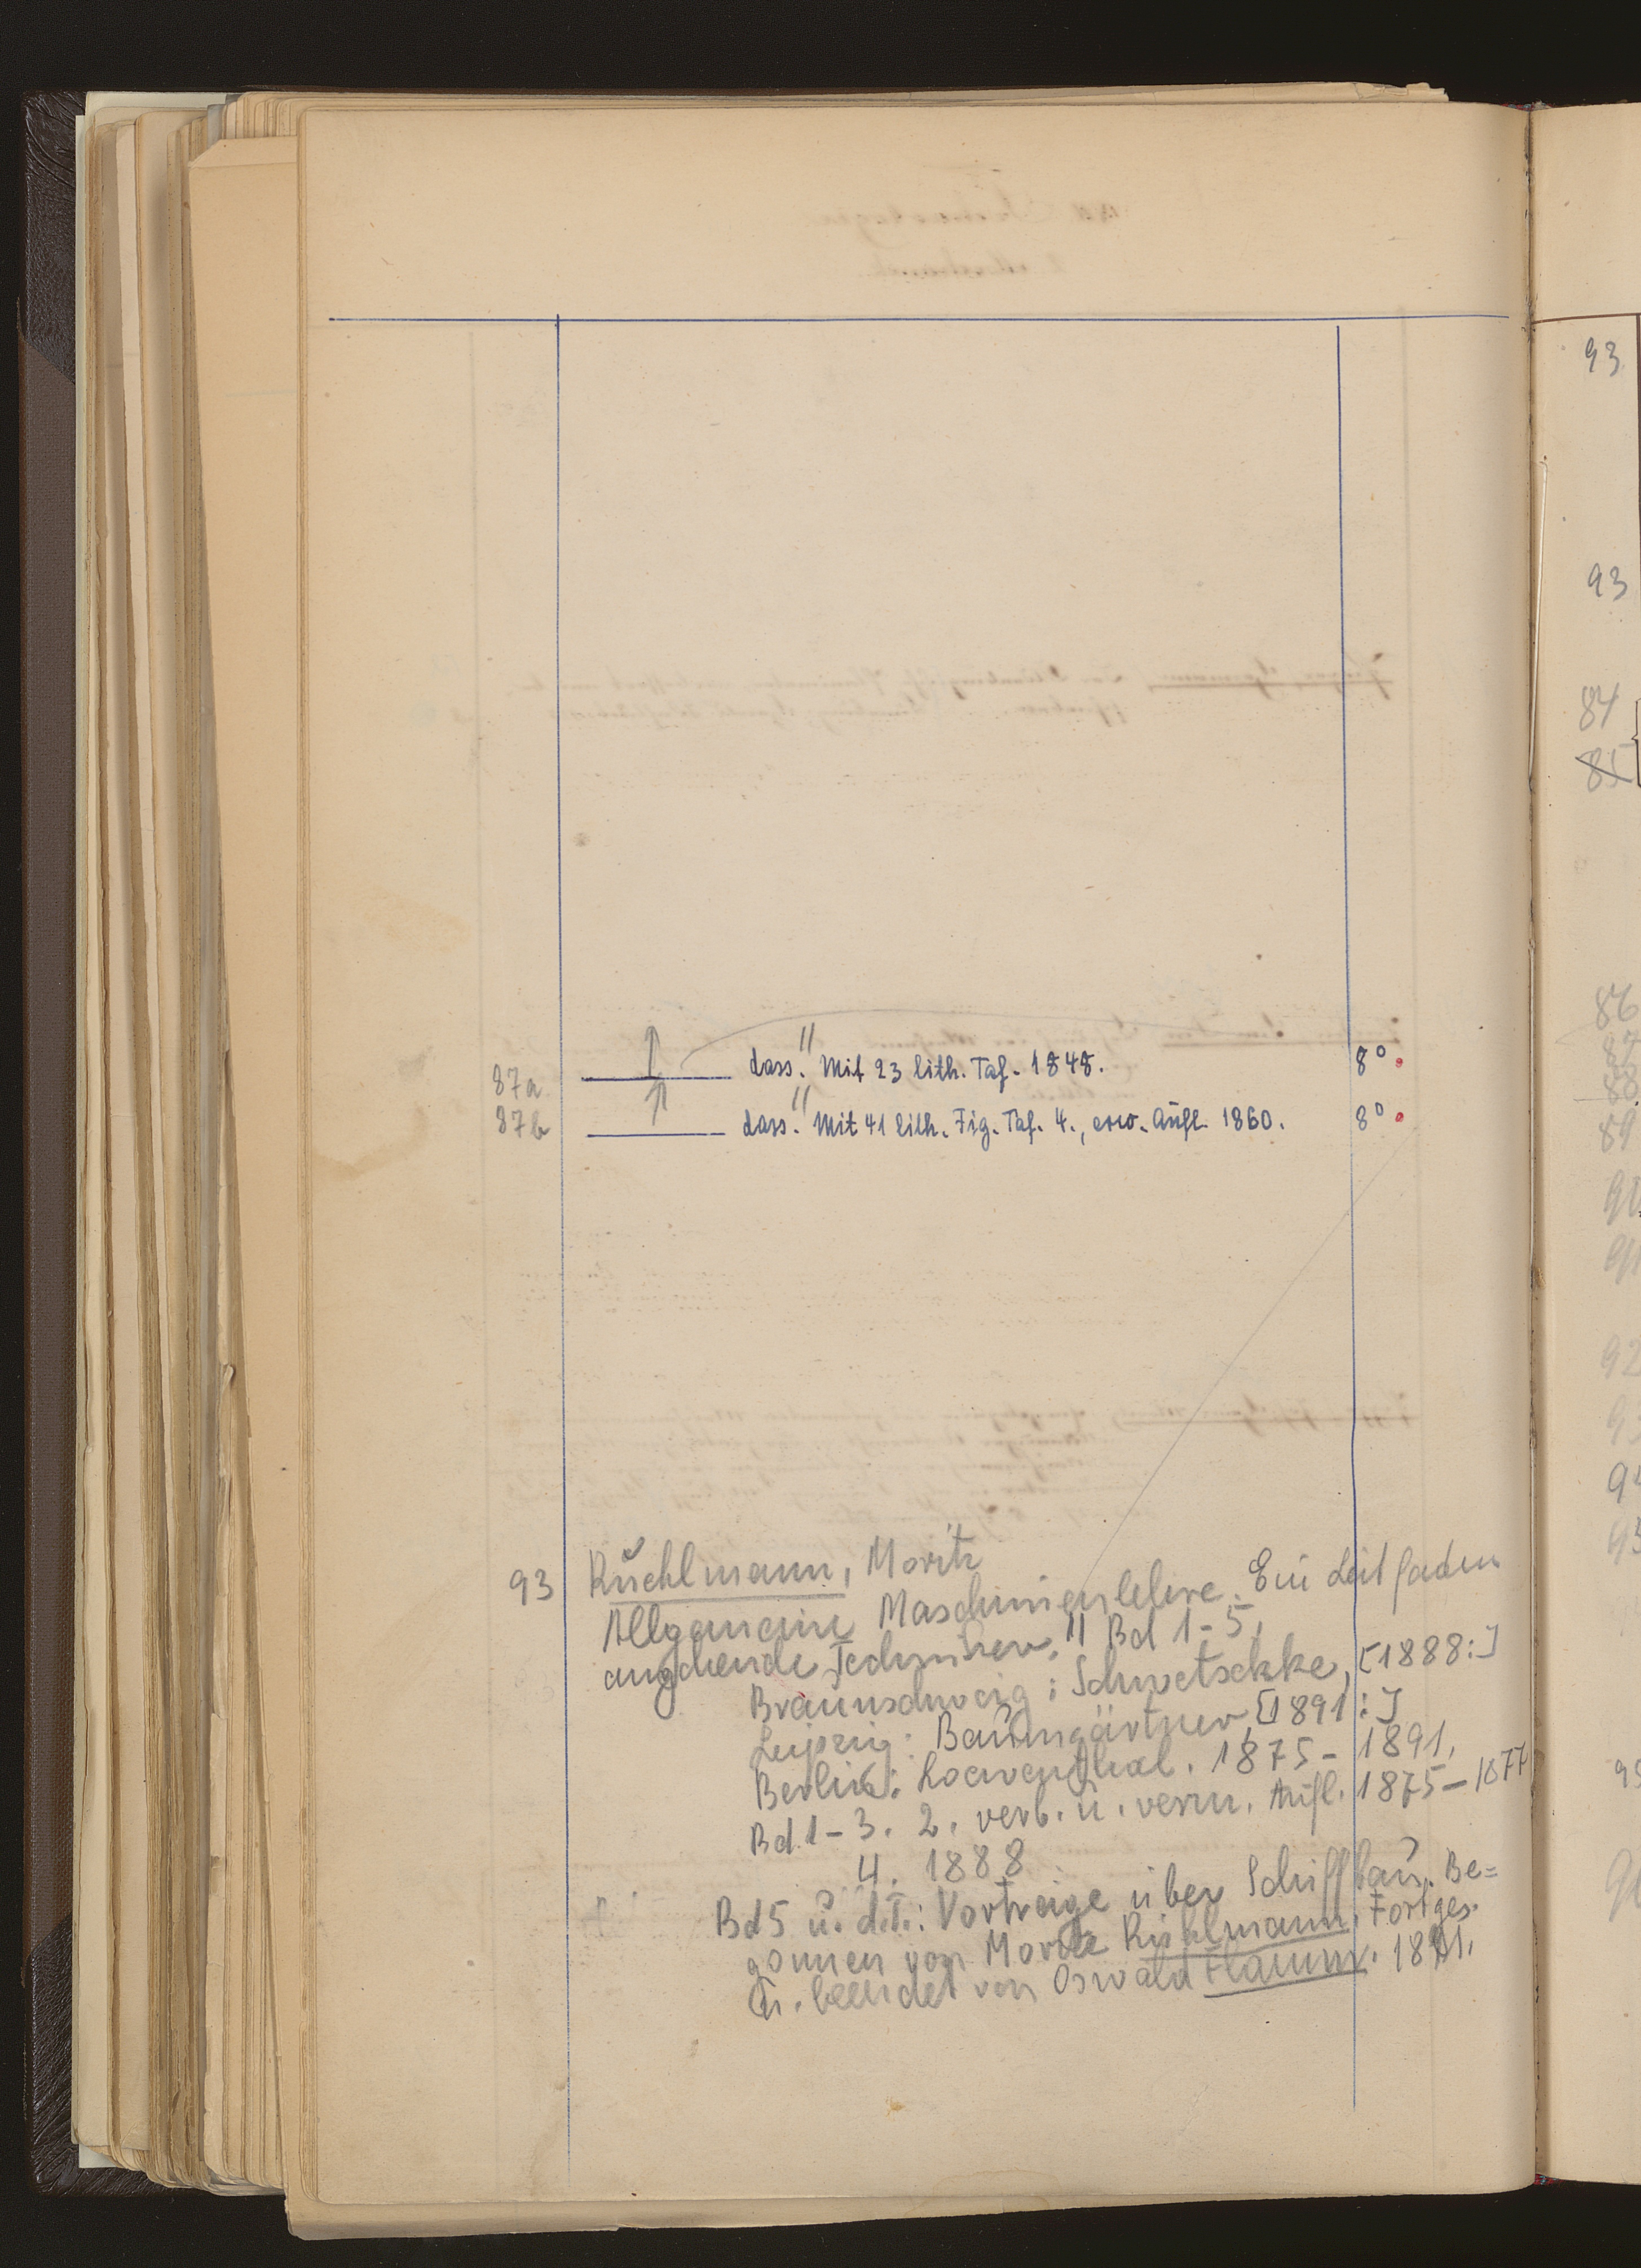 87a ↑ dass. // Mit 23 lith. Taf. 1848. 8°.
87b ↑ dass. // Mit 41 lith. Fig. Taf. 4., erw. Aufl. 1860. 8°.
93 Rüehlmann, Moritz
Allgemeine Maschinenlehre. Ein Leitfaden
angehende Techniker. // Bd 1-5,
Braunschweig: Schwetschke, [1888:]
Leipzig: Baumgärtner, [1891:]
Berlin: Loewenthal. 1875-1891.
Bd.1-3. 2. verb. u. verm. Aufl. 1875-1877
4. 1888
Bd 5 u. d. T.: Vorträge über Schiffbau. Be=
gonnen von Moritz Rühlmann. Fortges.
u. beendet von Oswald Flamm. 1891.
93
93
84
85
86
87
88
89
90
91
92
93
94